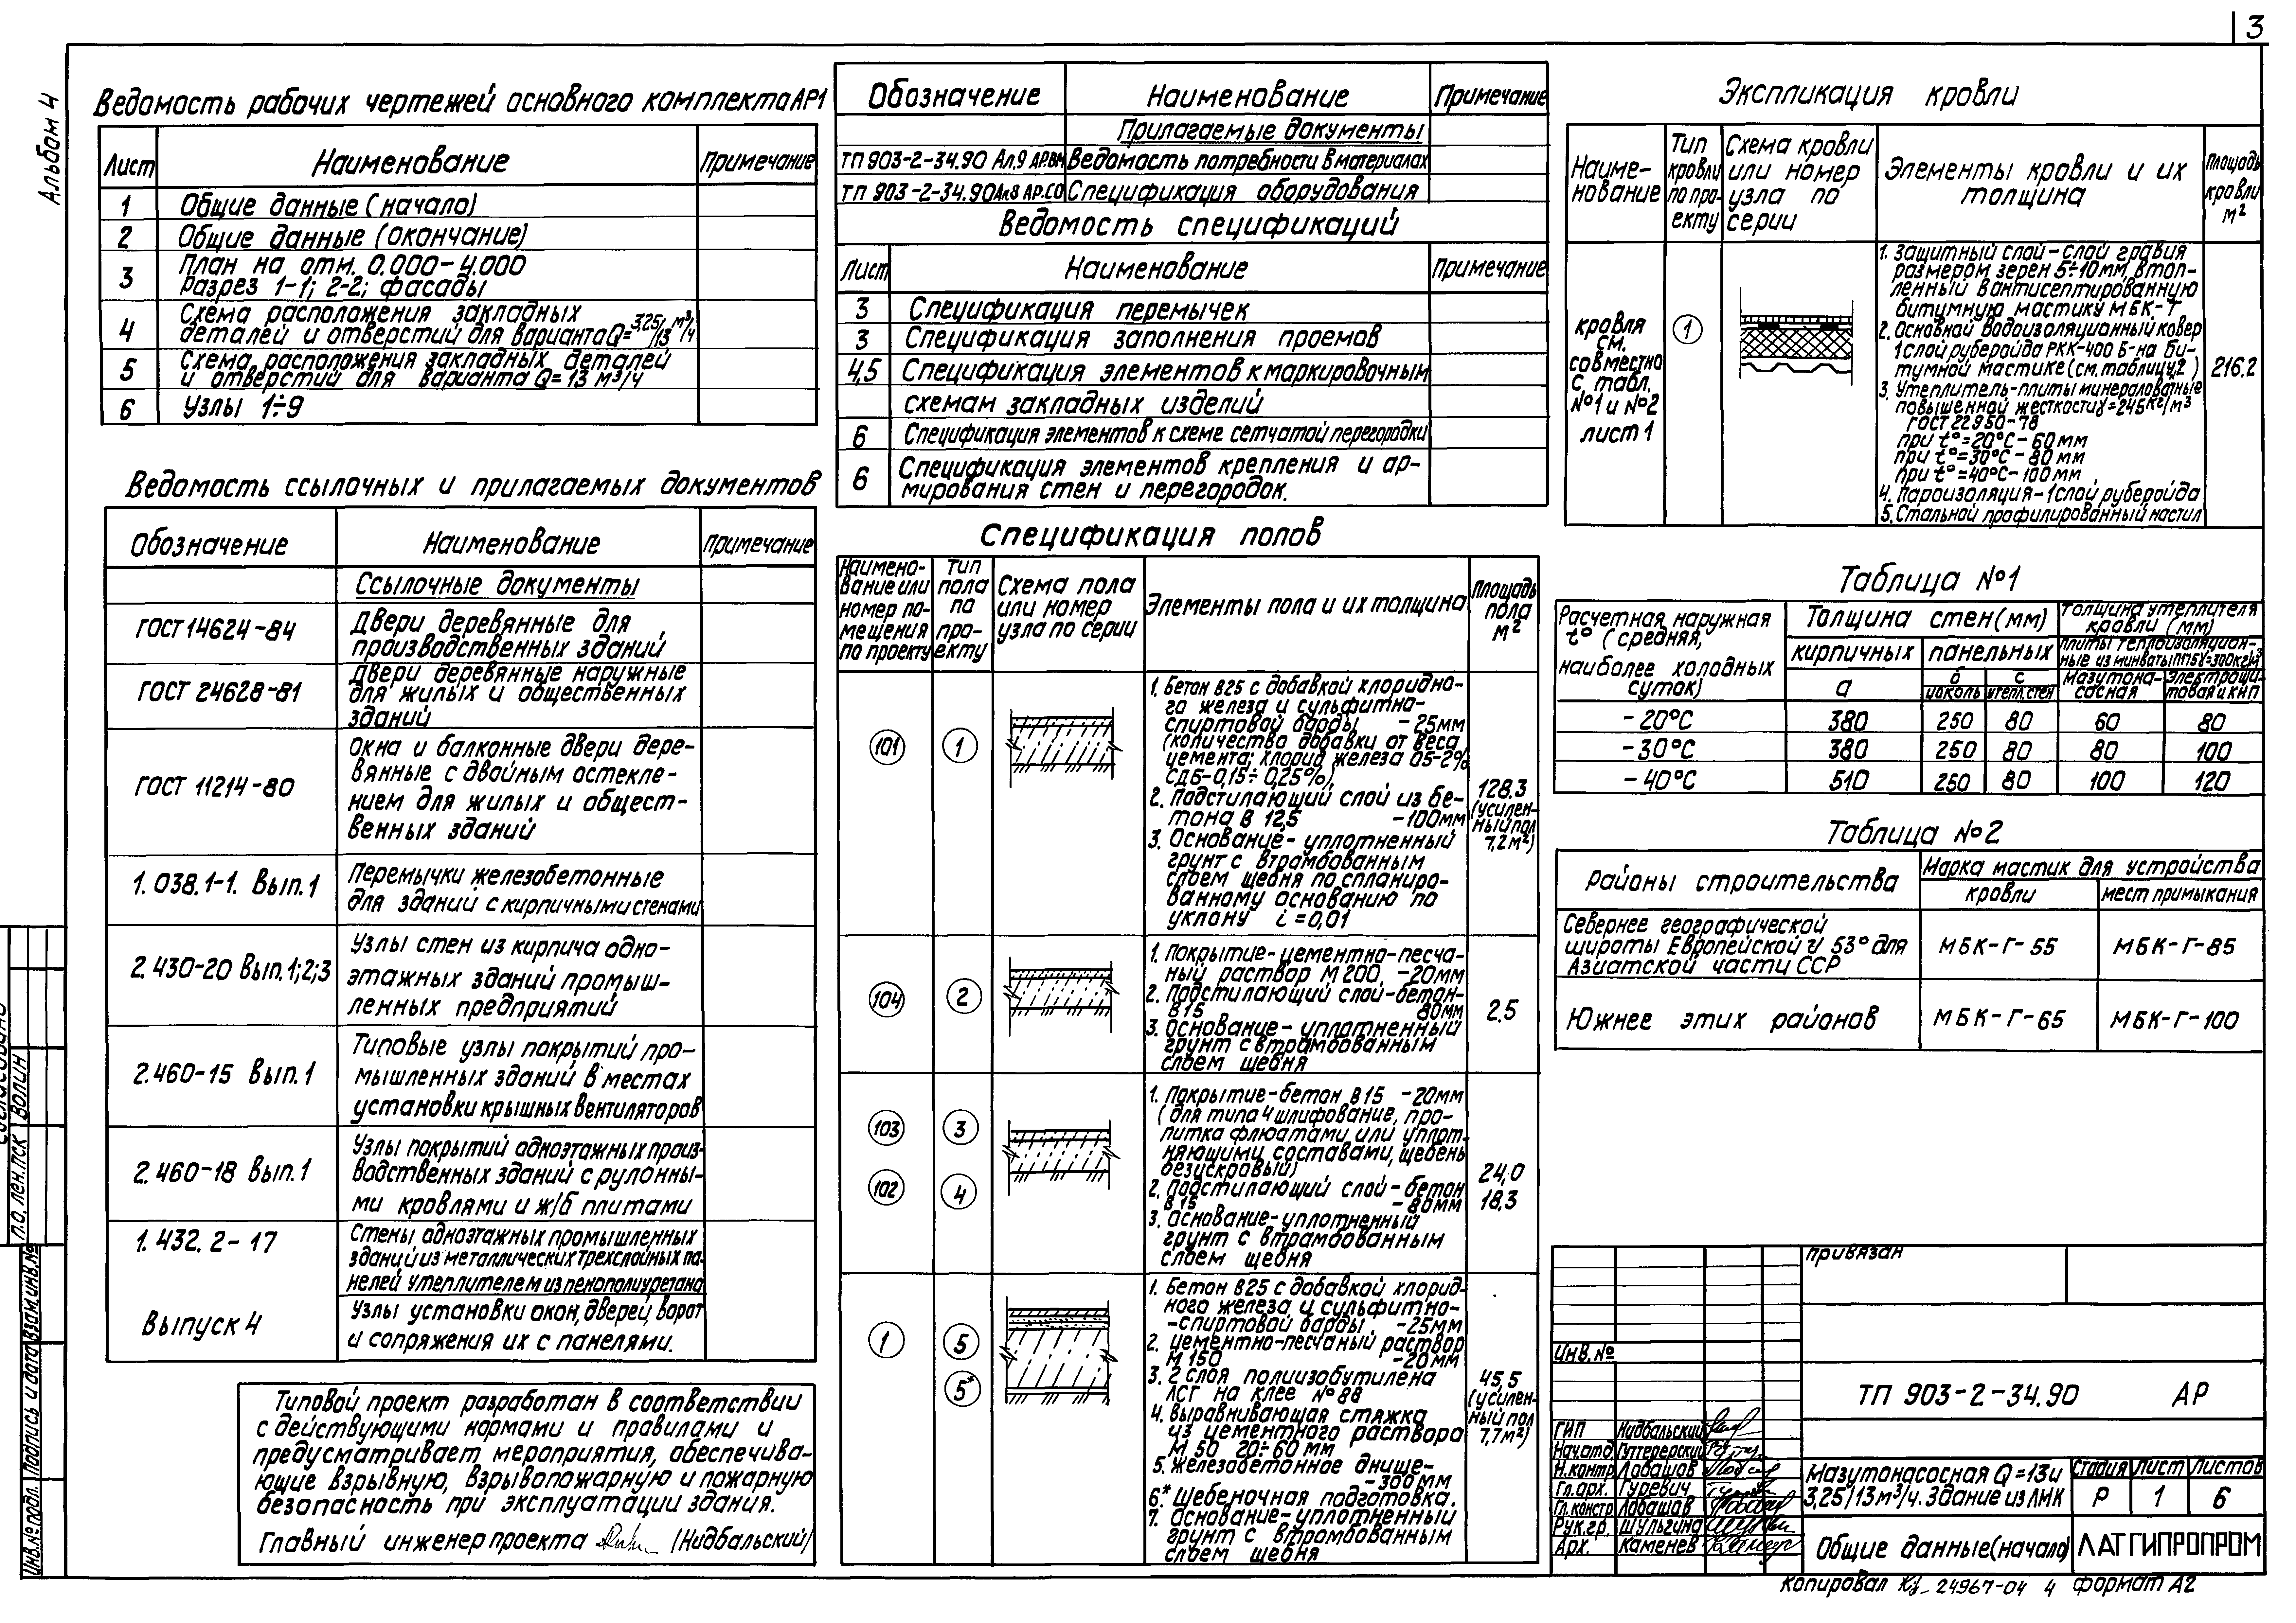 3
Альбом 4
Ведомость рабочих чертежей основного комплекта АР1
Лист Наименование Примечание
1 Общие данные (начало)
2 Общие данные (окончание)
3 План на отм. 0.000-4.000
Разрез 1-1; 2-2; фасады
4 Схема расположения закладных
деталей и отверстий для варианта Q=3,25/13 м³/ч
5 Схема расположения закладных деталей
и отверстий для варианта Q=13 м³/ч
6 Узлы 1÷9
Ведомость ссылочных и прилагаемых документов
Обозначение Наименование Примечание
Ссылочные документы
ГОСТ 14624-84 Двери деревянные для
производственных зданий
ГОСТ 24628-81 Двери деревянные наружные
для жилых и общественных
зданий
ГОСТ 11214-80 Окна и балконные двери дере-
вянные с двойным остекле-
нием для жилых и общест-
венных зданий
1.038.1-1. Вып.1 Перемычки железобетонные
для зданий с кирпичными стенами
2.430-20 Вып.1;2;3 Узлы стен из кирпича одно-
этажных зданий промыш-
ленных предприятий
2.460-15 Вып.1 Типовые узлы покрытий про-
мышленных зданий в местах
установки крышных вентиляторов
2.460-18 Вып.1 Узлы покрытий одноэтажных произ-
водственных зданий с рулонны-
ми кровлями и ж/б плитами
1.432.2-17 Стены одноэтажных промышленных
зданий из металлических трехслойных па-
нелей утеплителем из пенополиуретана
Выпуск 4 Узлы установки окон, дверей, ворот
и сопряжения их с панелями.
Типовой проект разработан в соответствии
с действующими нормами и правилами и
предусматривает мероприятия, обеспечива-
ющие взрывную, взрывопожарную и пожарную
безопасность при эксплуатации здания.
Главный инженер проекта /Нидбальский/
Обозначение Наименование Примечание
Прилагаемые документы
ТП 903-2-34.90 Ал.9 АР.ВМ Ведомость потребности в материалах
ТП 903-2-34.90 Ал.8 АР.СО Спецификация оборудования
Ведомость спецификаций
Лист Наименование Примечание
3 Спецификация перемычек
3 Спецификация заполнения проемов
4,5 Спецификация элементов к маркировочным
схемам закладных изделий
6 Спецификация элементов к схеме сетчатой перегородки
6 Спецификация элементов крепления и ар-
мирования стен и перегородок.
Спецификация полов
Наимено-
вание или
номер по-
мещения
по проекту
Тип
пола
по
про-
екту
Схема пола
или номер
узла по серии
Элементы пола и их толщина
Площадь
пола
м²
101 1
1. Бетон В25 с добавкой хлоридно-
го железа и сульфитно-
спиртовой барды -25мм
(количества добавки от веса
цемента; хлорид железа 05-2%
СДБ-0,15÷0,25%)
2. Подстилающий слой из бе-
тона В 12,5 -100мм
3. Основание- уплотненный
грунт с втрамбованным
слоем щебня по спланиро-
ванному основанию по
уклону i=0,01
128.3
(усилен-
ный пол
7,2м²)
104 2
1. Покрытие-цементно-песча-
ный раствор М200, -20мм
2. Подстилающий слой-бетон-
В15 80мм
3. Основание- уплотненный
грунт с втрамбованным
слоем щебня
2.5
103 3
102 4
1. Покрытие-бетон В15 -20мм
(для типа 4 шлифование, про-
питка флюатами или уплот-
няющими составами, щебень
безискровый)
2. Подстилающий слой-бетон
В15 -80мм
3. Основание-уплотненный
грунт с втрамбованным
слоем щебня
24,0
18,3
1 5
5*
1. Бетон В25 с добавкой хлорид-
ного железа и сульфитно-
-спиртовой барды -25мм
2. Цементно-песчаный раствор
М 150 -20мм
3. 2 слоя полиизобутилена
ПСГ на клее №88
4. Выравнивающая стяжка
из цементного раствора
М 50 20÷60 мм
5. Железобетонное днище-
-300мм
6* Щебеночная подготовка.
7. Основание-уплотненный
грунт с втрамбованным
слоем щебня
45,5
(усилен-
ный пол
7,7м²)
Экспликация кровли
Наиме-
нование
Тип
кровли
по про-
екту
Схема кровли
или номер
узла по
серии
Элементы кровли и их
толщина
Площадь
кровли
м²
кровля
см.
совместно
с табл.
№1 и №2
лист 1
1
1. Защитный слой-слой гравия
размером зерен 5÷10мм, втоп-
ленный в антисептированную
битумную мастику МБК-Г
2. Основной водоизоляционный ковер
1 слой рубероида РКК-400 Б-на би-
тумной мастике (см. таблицу 2)
3. Утеплитель-плиты минераловатные
повышенной жесткости γ=245кг/м³
ГОСТ 22950-78
при t°=20°С-60мм
при t°=30°С-80мм
при t°=40°С-100мм
4. Пароизоляция-1слой рубероида
5. Стальной профилированный настил
216.2
Таблица №1
Расчетная наружная
t° (средняя,
наиболее холодных
суток)
Толщина стен (мм)
кирпичных панельных
а б цоколь с утепл.стен
Толщина утеплителя
кровли (мм)
плиты теплоизоляцион-
ные из минваты ПП5 γ=300кг/м³
Мазутона-
сосная
Электрощи-
товая и КИП
-20°С 380 250 80 60 80
-30°С 380 250 80 80 100
-40°С 510 250 80 100 120
Таблица №2
Районы строительства Марка мастик для устройства
кровли мест примыкания
Севернее географической
широты Европейской и 53° для
Азиатской части СССР
МБК-Г-55 МБК-Г-85
Южнее этих районов МБК-Г-65 МБК-Г-100
Привязан
Инв.№
ТП 903-2-34.90 АР
ГИП Нидбальский
Нач.отд.
Н.контр. Лабашов
Гл.арх. Гуревич
Гл.констр. Лабашов
Рук.гр. Шульгина
Арх. Каменев
Мазутонасосная Q=13 и
3,25/13м³/ч. Здание из ЛМК
Стадия Лист Листов
Р 1 6
Общие данные (начало)
ЛАТГИПРОПРОМ
Копировал 24967-04 4 формат А2
Согласовано
Л.О. Лен.ПСК Волин
Инв.№ подл. Подпись и дата Взам.инв.№